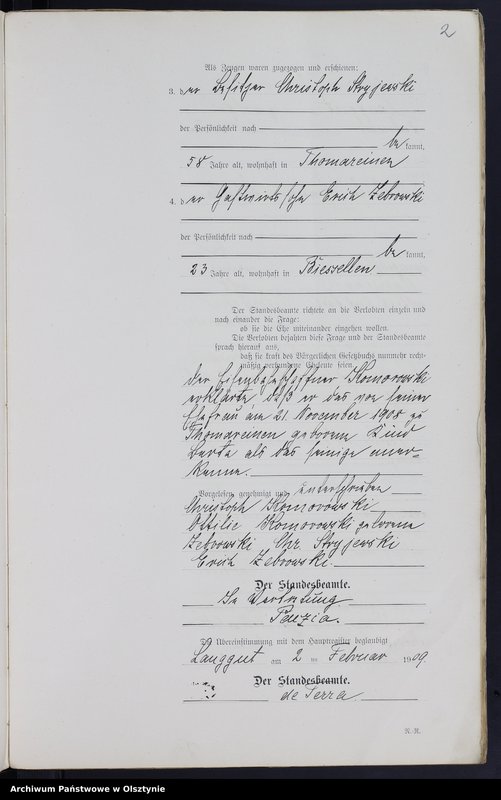 2
Als Zeugen waren zugezogen und erschienen:
3. der Besitzer Christoph Stryjewski
der Persönlichkeit nach
be kannt,
58 Jahre alt, wohnhaft in Thomareinen
4. der Gastwirtssohn Erich Zebrowski
der Persönlichkeit nach
be kannt,
23 Jahre alt, wohnhaft in Biessellen
Der Standesbeamte richtete an die Verlobten einzeln und
nach einander die Frage:
ob sie die Ehe miteinander eingehen wollen.
Die Verlobten bejahten diese Frage und der Standesbeamte
sprach hierauf aus,
daß sie kraft des Bürgerlichen Gesetzbuchs nunmehr recht-
mäßig verbundene Eheleute seien.
der Eisenbahnschaffner Komorowski
erklärte daß er das von seiner
Ehefrau am 21 November 1908 zu
Thomareinen geborene Kind
Berta als das seinige aner-
kenne.
Vorgelesen, genehmigt und unterschrieben
Christoph Komorowski
Ottilie Komorowski geborene
Zebrowski Chr. Stryjewski
Erich Zebrowski.
Der Standesbeamte.
In Vertretung
Pauzia.
Die Übereinstimmung mit dem Hauptregister beglaubigt
Langgut am 2 ten Februar 1909
Der Standesbeamte.
de Terra.
N.-R.
Archiwum Państwowe w Olsztynie